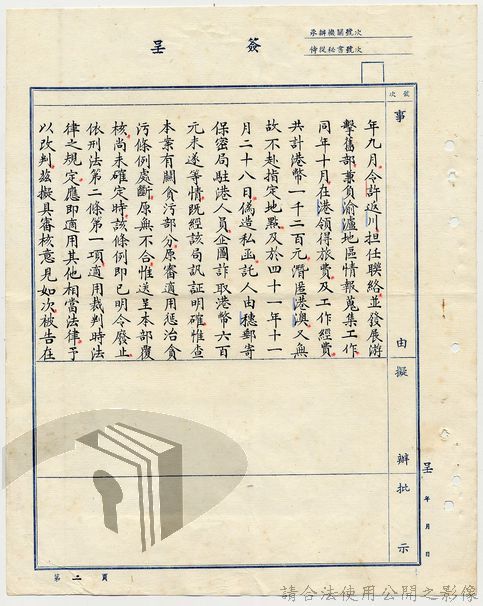 簽 呈
承辦機關號次
侍從秘書號次
號次
事 由
擬 辦
批 示
年九月令許返川担任聯絡並發展游
擊舊部兼負渝瀘地區情報蒐集工作
同年十月在港領得旅費及工作經費
共計港幣一千二百元潛匿港澳又無
故不赴指定地點及於四十一年十一
月二十八日偽造私函託人由穗郵寄
保密局駐港人員企圖詐取港幣六百
元未遂等情既經該局訊証明確惟查
本案有關貪污部分原審適用懲治貪
污條例處斷原無不合惟送呈本部覆
核尚未確定時該條例即已明令廢止
依刑法第二條第一項適用裁判時法
律之規定應即適用其他相當法律予
以改判茲擬具審核意見如次被告在
呈 年 月 日
第二頁
請合法使用公開之影像